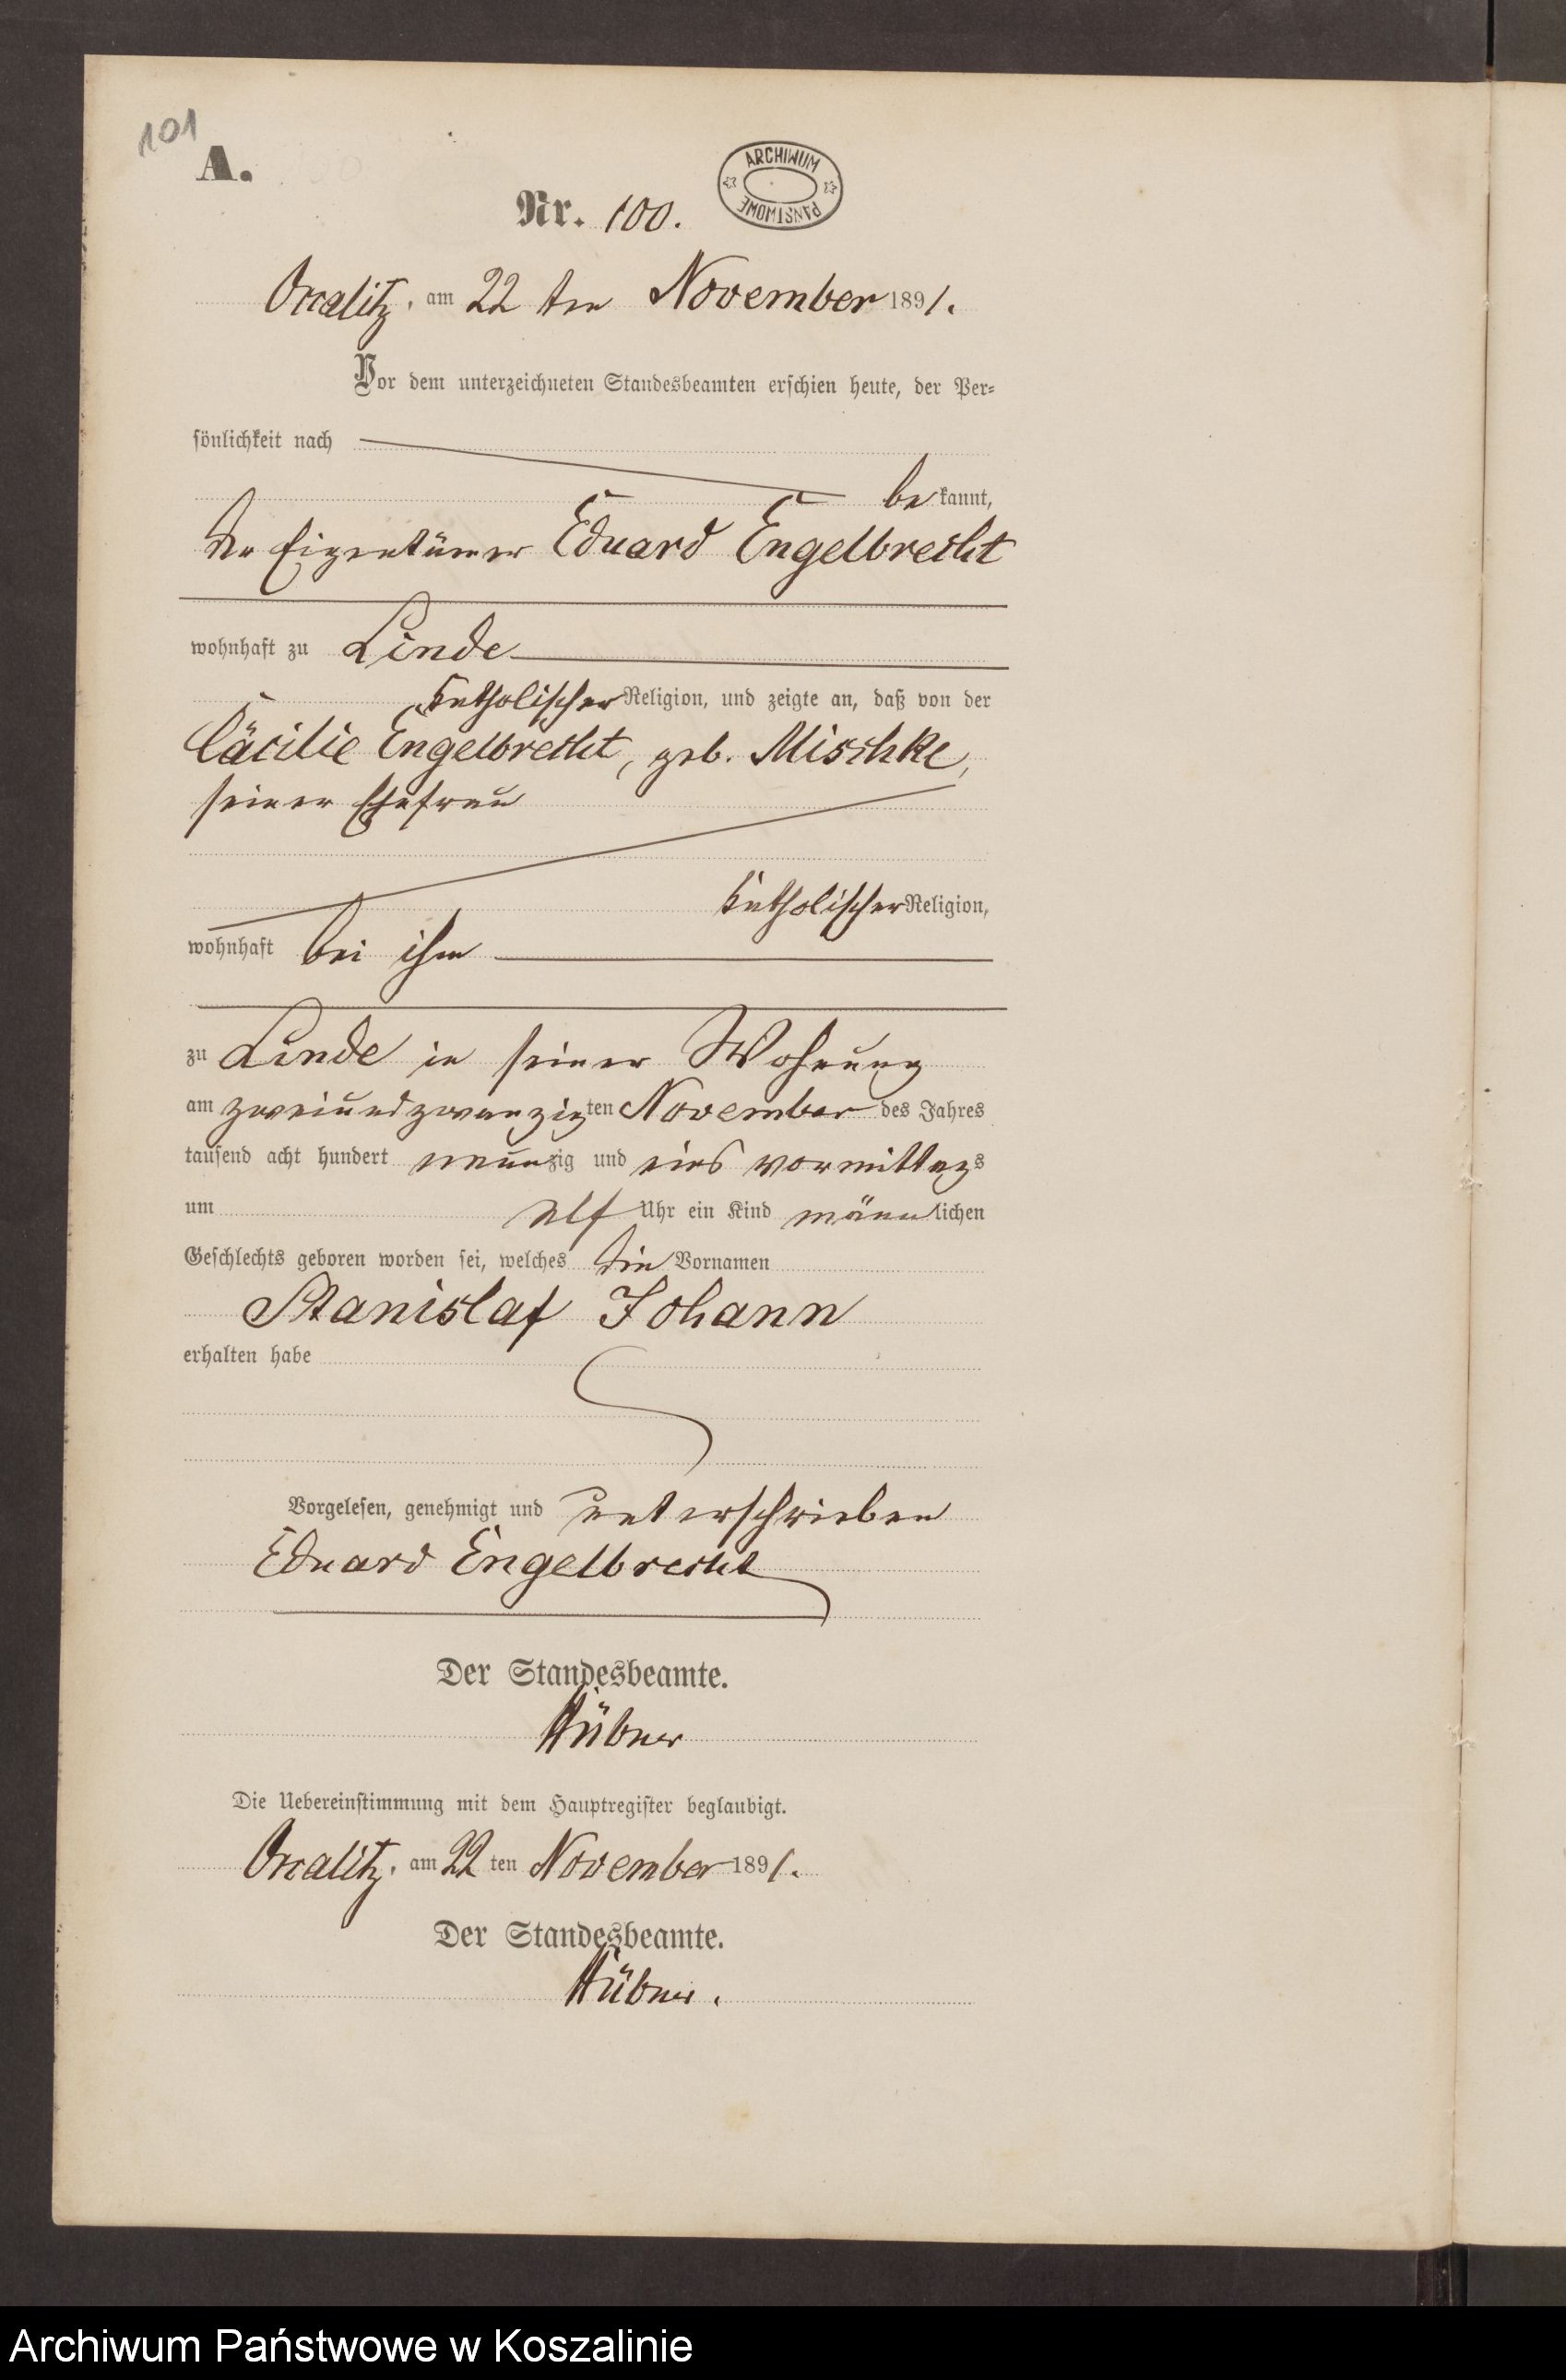 101
A.
ARCHIWUM
PAŃSTWOWE
Nr. 100.
am 22 ten November 1891.
Vor dem unterzeichneten Standesbeamten erschien heute, der Per-
sönlichkeit nach
bekannt,
der Eigentümer Eduard Engelbrecht
wohnhaft zu Linde
katholischer Religion, und zeigte an, daß von der
Cäcilie Engelbrecht, geb. Mischke,
seiner Ehefrau
katholischer Religion,
wohnhaft bei ihm
zu Linde in seiner Wohnung
am zweiundzwanzigten November des Jahres
tausend acht hundert neunzig und eins vormittags
um elf Uhr ein Kind männlichen
Geschlechts geboren worden sei, welches die Vornamen
Stanislaf Johann
erhalten habe
Vorgelesen, genehmigt und unterschrieben
Eduard Engelbrecht
Der Standesbeamte.
Hübner
Die Uebereinstimmung mit dem Hauptregister beglaubigt.
am 22 ten November 1891.
Der Standesbeamte.
Hübner.
Archiwum Państwowe w Koszalinie